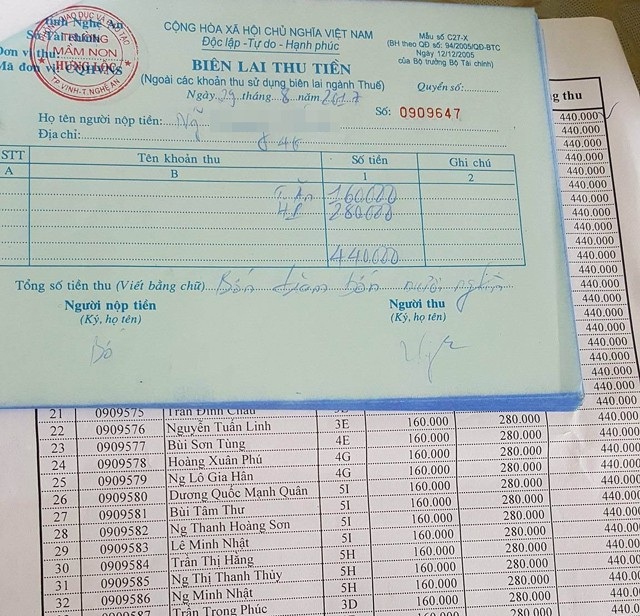 Tỉnh Nghệ An
Sở Tài chính
Đơn vị thu
Mã đơn vị CQHVNS
TRƯỜNG
MẦM NON
HƯNG LỘC
TP.VINH-T.NGHỆ AN
CỘNG HÒA XÃ HỘI CHỦ NGHĨA VIỆT NAM
Độc lập -Tự do - Hạnh phúc
Mẫu số C27-X
(BH theo QĐ số: 94/2005/QĐ-BTC
Ngày 12/12/2005
của Bộ trưởng Bộ Tài chính)
BIÊN LAI THU TIỀN
(Ngoài các khoản thu sử dụng biên lai ngành Thuế)
Quyển số:
Ngày 29 tháng 8 năm 2017
Số: 0909647
Họ tên người nộp tiền:
Địa chỉ:
STT Tên khoản thu Số tiền Ghi chú
A B 1 2
T. Ăn 160000
280000
440000
Tổng số tiền thu (Viết bằng chữ) Bốn trăm bốn mươi nghìn
Người nộp tiền Người thu
(Ký, họ tên) (Ký, họ tên)
Bố
g thu
440.000
440.000
440.000
440.000
440.000
440.000
440.000
440.000
440.000
440.000
440.000
440.000
440.000
440.000
440.000
440.000
440.000
440.000
440.000
440.000
21 0909575 Trần Đình Châu
22 0909576 Nguyễn Tuấn Linh 3E 160.000 280.000 440.000
23 0909577 Bùi Sơn Tùng 4E 160.000 280.000 440.000
24 0909578 Hoàng Xuân Phú 4G 160.000 280.000 440.000
25 0909579 Ng Lô Gia Hân 4G 160.000 280.000 440.000
26 0909580 Dương Quốc Mạnh Quân 5I 160.000 280.000 440.000
27 0909581 Bùi Tâm Thư 5I 160.000 280.000 440.000
28 0909582 Ng Thanh Hoàng Sơn 5I 160.000 280.000 440.000
29 0909583 Lê Minh Nhật 5I 160.000 280.000 440.000
30 0909584 Trần Thị Hằng 5H 160.000 280.000 440.000
31 0909585 Ng Thị Thanh Thủy 5H 160.000 280.000 440.000
32 0909586 Ng Minh Nhật 5H 160.000 280.000 440.000
0909587 Trần Trọng Phúc 3D 160.000 280.000